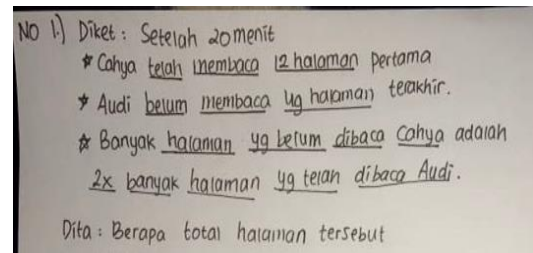 NO 1.) Diket : Setelah 20 menit
* Cahya telah membaca 12 halaman pertama
* Audi belum membaca 49 halaman terakhir.
* Banyak halaman yg belum dibaca Cahya adalah
2x banyak halaman yg telah dibaca Audi.
Dita : Berapa total halaman tersebut